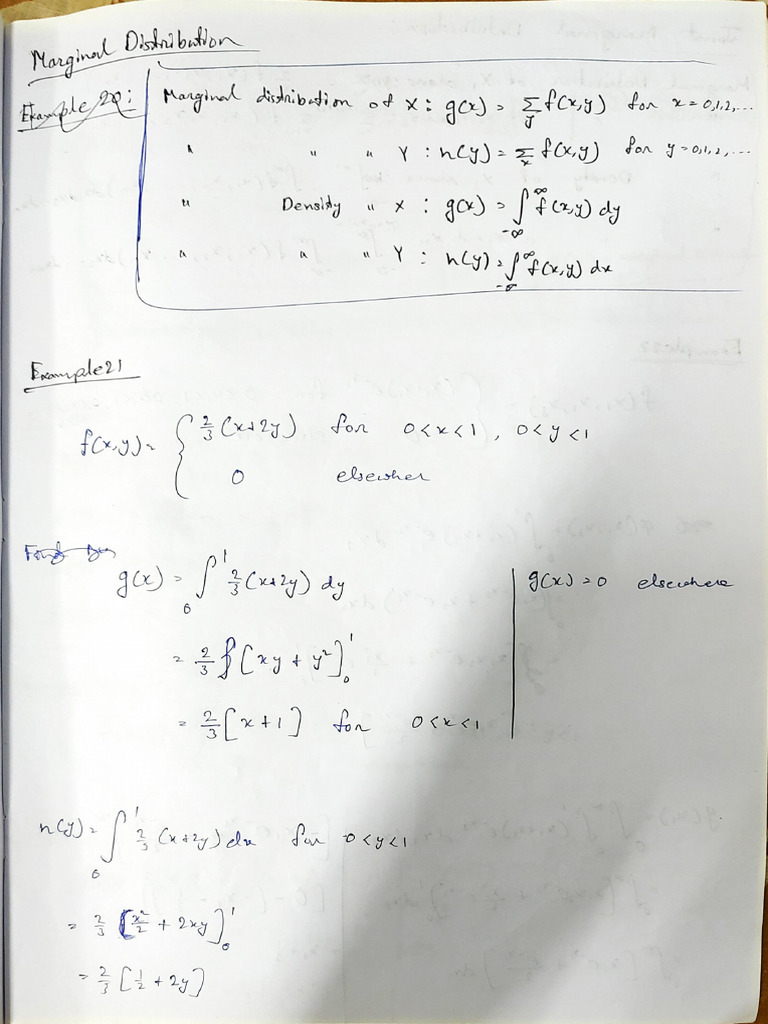 Marginal Distribution
Example 20:
Marginal distribution of X : g(x) = Σ_y f(x,y) for x = 0,1,2,...
" " " Y : h(y) = Σ_x f(x,y) for y = 0,1,2,...
" Density " X : g(x) = ∫_{-∞}^{∞} f(x,y) dy
" " " Y : h(y) = ∫_{-∞}^{∞} f(x,y) dx
Example 21
f(x,y) = { 2/3 (x+2y) for 0<x<1, 0<y<1
0 elsewher
g(x) = ∫_0^1 2/3 (x+2y) dy | g(x) = 0 elsewhere
= 2/3 [xy + y²]_0^1
= 2/3 [x+1] for 0<x<1
h(y) = ∫_0^1 2/3 (x+2y) dx for 0<y<1
= 2/3 [x²/2 + 2xy]_0^1
= 2/3 [1/2 + 2y]